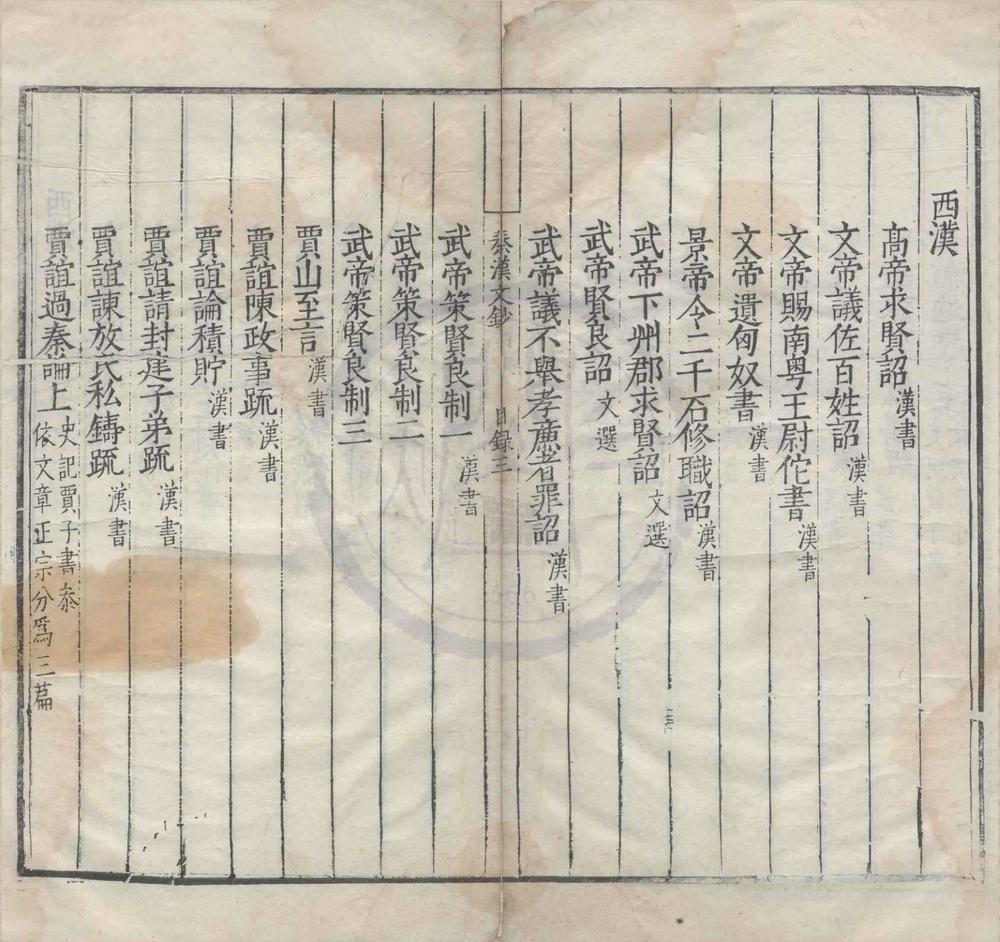 西漢
高帝求賢詔 漢書
文帝議佐百姓詔 漢書
文帝賜南粤王尉佗書 漢書
文帝遺匈奴書 漢書
景帝令二千石修職詔 漢書
武帝下州郡求賢詔 文選
武帝賢良詔 文選
武帝議不舉孝廉者罪詔 漢書
秦漢文鈔 目録三
武帝策賢良制一 漢書
武帝策賢良制二
武帝策賢良制三
賈山至言 漢書
賈誼陳政事疏 漢書
賈誼論積貯 漢書
賈誼請封建子弟疏 漢書
賈誼諫放民私鑄疏 漢書
賈誼過秦論上 史記賈子書叅
依文章正宗分爲三篇